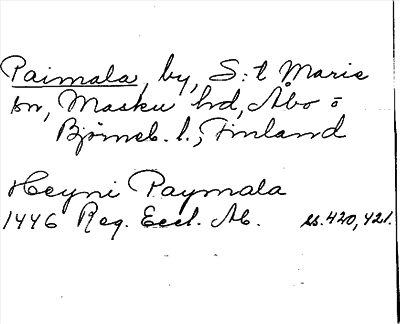 Paimala, by, S:t Marie
sn, Masku hd, Åbo o
Björneb. l., Finland
Heyni Paymala
1446 Reg. Eccl. Ab. ss. 420, 421.